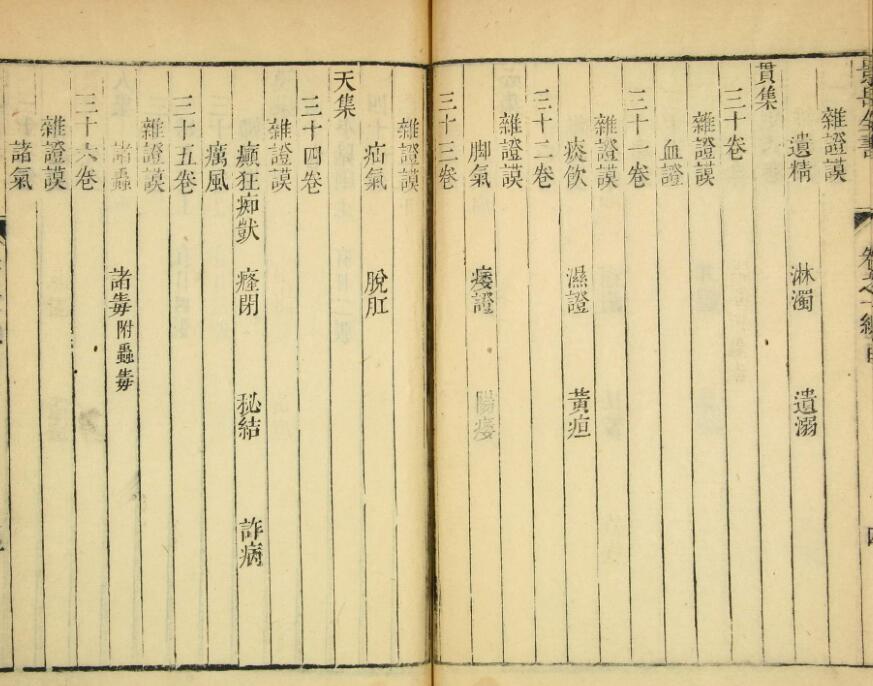 景岳全書 卷之一總目 四
雜證謨
遺精 淋濁 遺溺
貫集
三十卷
雜證謨
血證
三十一卷
雜證謨
痰飲 濕證 黃疸
三十二卷
雜證謨
脚氣 痿證 陽痿
三十三卷
雜證謨
疝氣 脫肛
天集
三十四卷
雜證謨
癲狂痴獃 癃閉 秘結 詐病
癘風
三十五卷
雜證謨
諸蟲 諸毒附蠱毒
三十六卷
雜證謨
諸氣